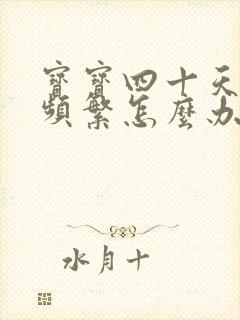 寶寶四十天
頻繁怎麼办
水月十